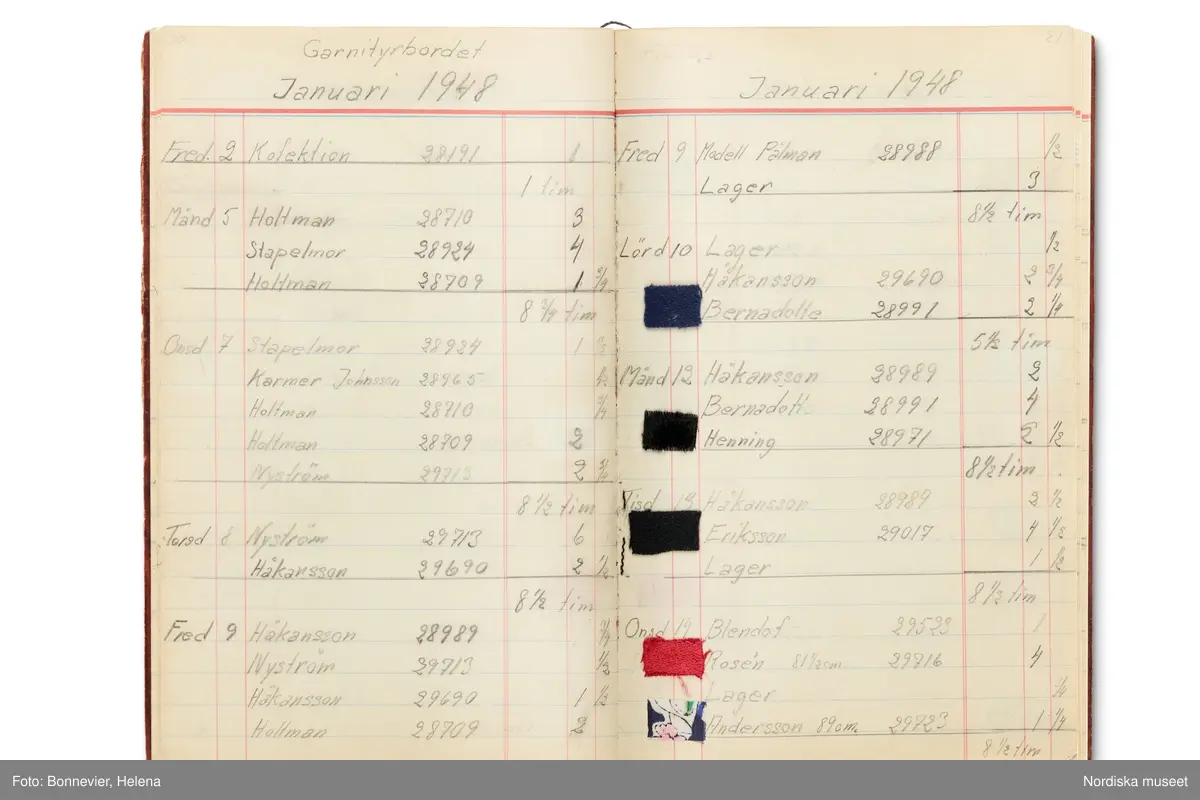 Garnityrbordet
Januari 1948
Fred. 2 Kolektion 28191 1
1 tim
Månd 5 Holtman 28710 3
Stapelmor 28924 4
Holtman 28709 1 3/4
8 3/4 tim
Onsd 7 Stapelmor 28924 1
Karmer Johnsson 28965 1/2
Holtman 28710 3/4
Holtman 28709 2
Nyström 29713 2 3/4
8 1/2 tim
Torsd 8 Nyström 29713 6
Håkansson 29690 2 1/2
8 1/2 tim
Fred 9 Håkansson 28989 3/4
Nyström 29713 1/2
Håkansson 29690 1 1/2
Holtman 28709 2
Januari 1948
Fred 9 Modell Pålman 28988 1/2
Lager 3
8 1/2 tim
Lörd 10 Lager 1/2
Håkansson 29690 2 3/4
Bernadotte 28991 2 1/4
5 1/2 tim
Månd 12 Håkansson 28989 2
Bernadott 28991 4
Henning 28971 2 1/2
8 1/2 tim
Tisd 13 Håkansson 28989 2 1/2
Eriksson 29017 4 1/2
Lager 1 1/2
8 1/2 tim
Onsd Blendof 29523 1
Rosén 81 1/2 cm 29716 4
Lager 1/4
Andersson 89 cm. 29723 1 1/4
8 1/2 tim
Foto: Bonnevier, Helena
Nordiska museet